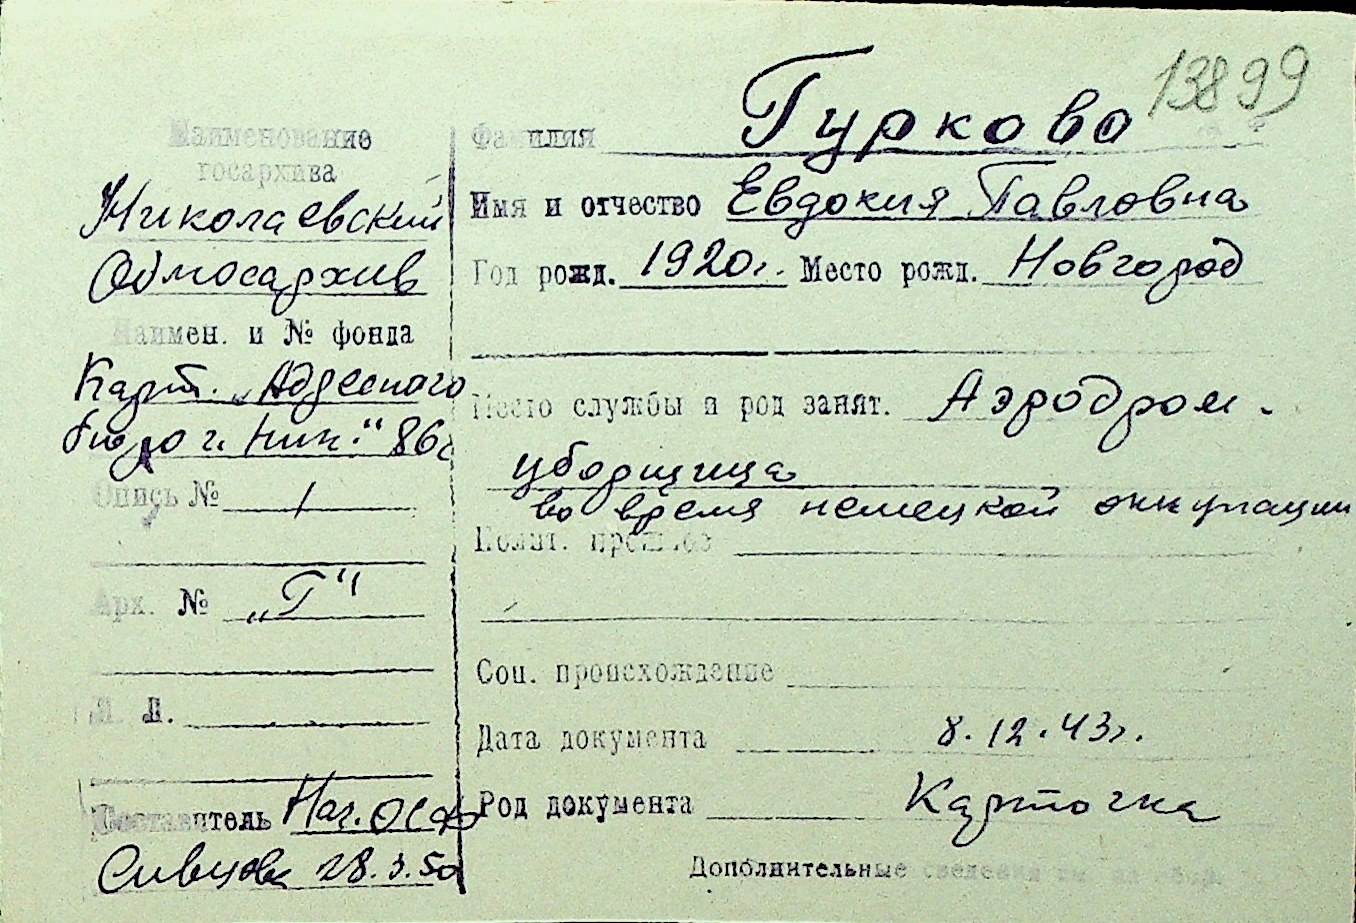 13899
Наименование
госархива
Николаевский
Облгосархив
Наимен. и № фонда
Карт. „Адресного
бюро г. Ник." 86с
Опись № 1
Арх. № „Г"
Л. Л.
Составитель Нач. ОСФ
Сивцова 28.3.50
Фамилия Гуркова
Имя и отчество Евдокия Павловна
Год рожд. 1920г. Место рожд. Новгород
Место службы и род занят. Аэродром -
уборщица
во время немецкой оккупации
Полит. прошлое
Соц. происхождение
Дата документа 8.12.43г.
Род документа Карточка
Дополнительные сведения см. на обор.